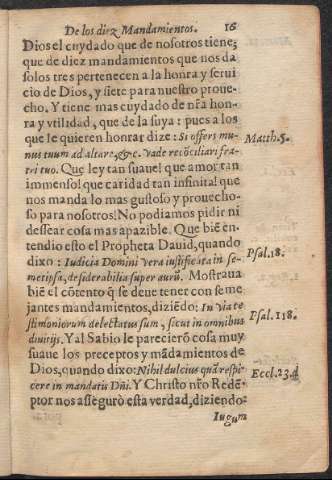 De los diez Mandamientos. 16
Dios el cuydado que de nosotros tiene;
que de diez mandamientos que nos da
solos tres pertenecen a la honra y serui
cio de Dios, y siete para nuestro proue-
cho. Y tiene mas cuydado de nr̃a hon-
ra y vtilidad, que de la suya: pues a los
que le quieren honrar dize: Si offers mu-
nus tuum ad altare, &c. vade recõciliari fra-
tri tuo. Que ley tan suaue! que amor tan
immenso! que caridad tan infinita! que
nos manda lo mas gustoso y prouecho-
so para nosotros! No podiamos pidir ni
dessear cosa mas apazible. Que biẽ en-
tendio esto el Propheta Dauid, quando
dixo: Iudicia Domini vera iustificata in se-
metipsa, desiderabilia super aurũ. Mostraua
biẽ el cõtento q̃ se deue tener con seme
jantes mandamientos, diziẽdo: In via te
stimoniorum delectatus sum, sicut in omnibus
diuitijs. Y al Sabio le parecierõ cosa muy
suaue los preceptos y mãdamientos de
Dios, quando dixo: Nihil dulcius quã respi
cere in mandatis Dñi. Y Christo nr̃o Redẽ-
ptor nos assegurò esta verdad, diziendo:
Iugum
Matth. 5.
Psal. 18.
Psal. 118.
Eccl. 23. d